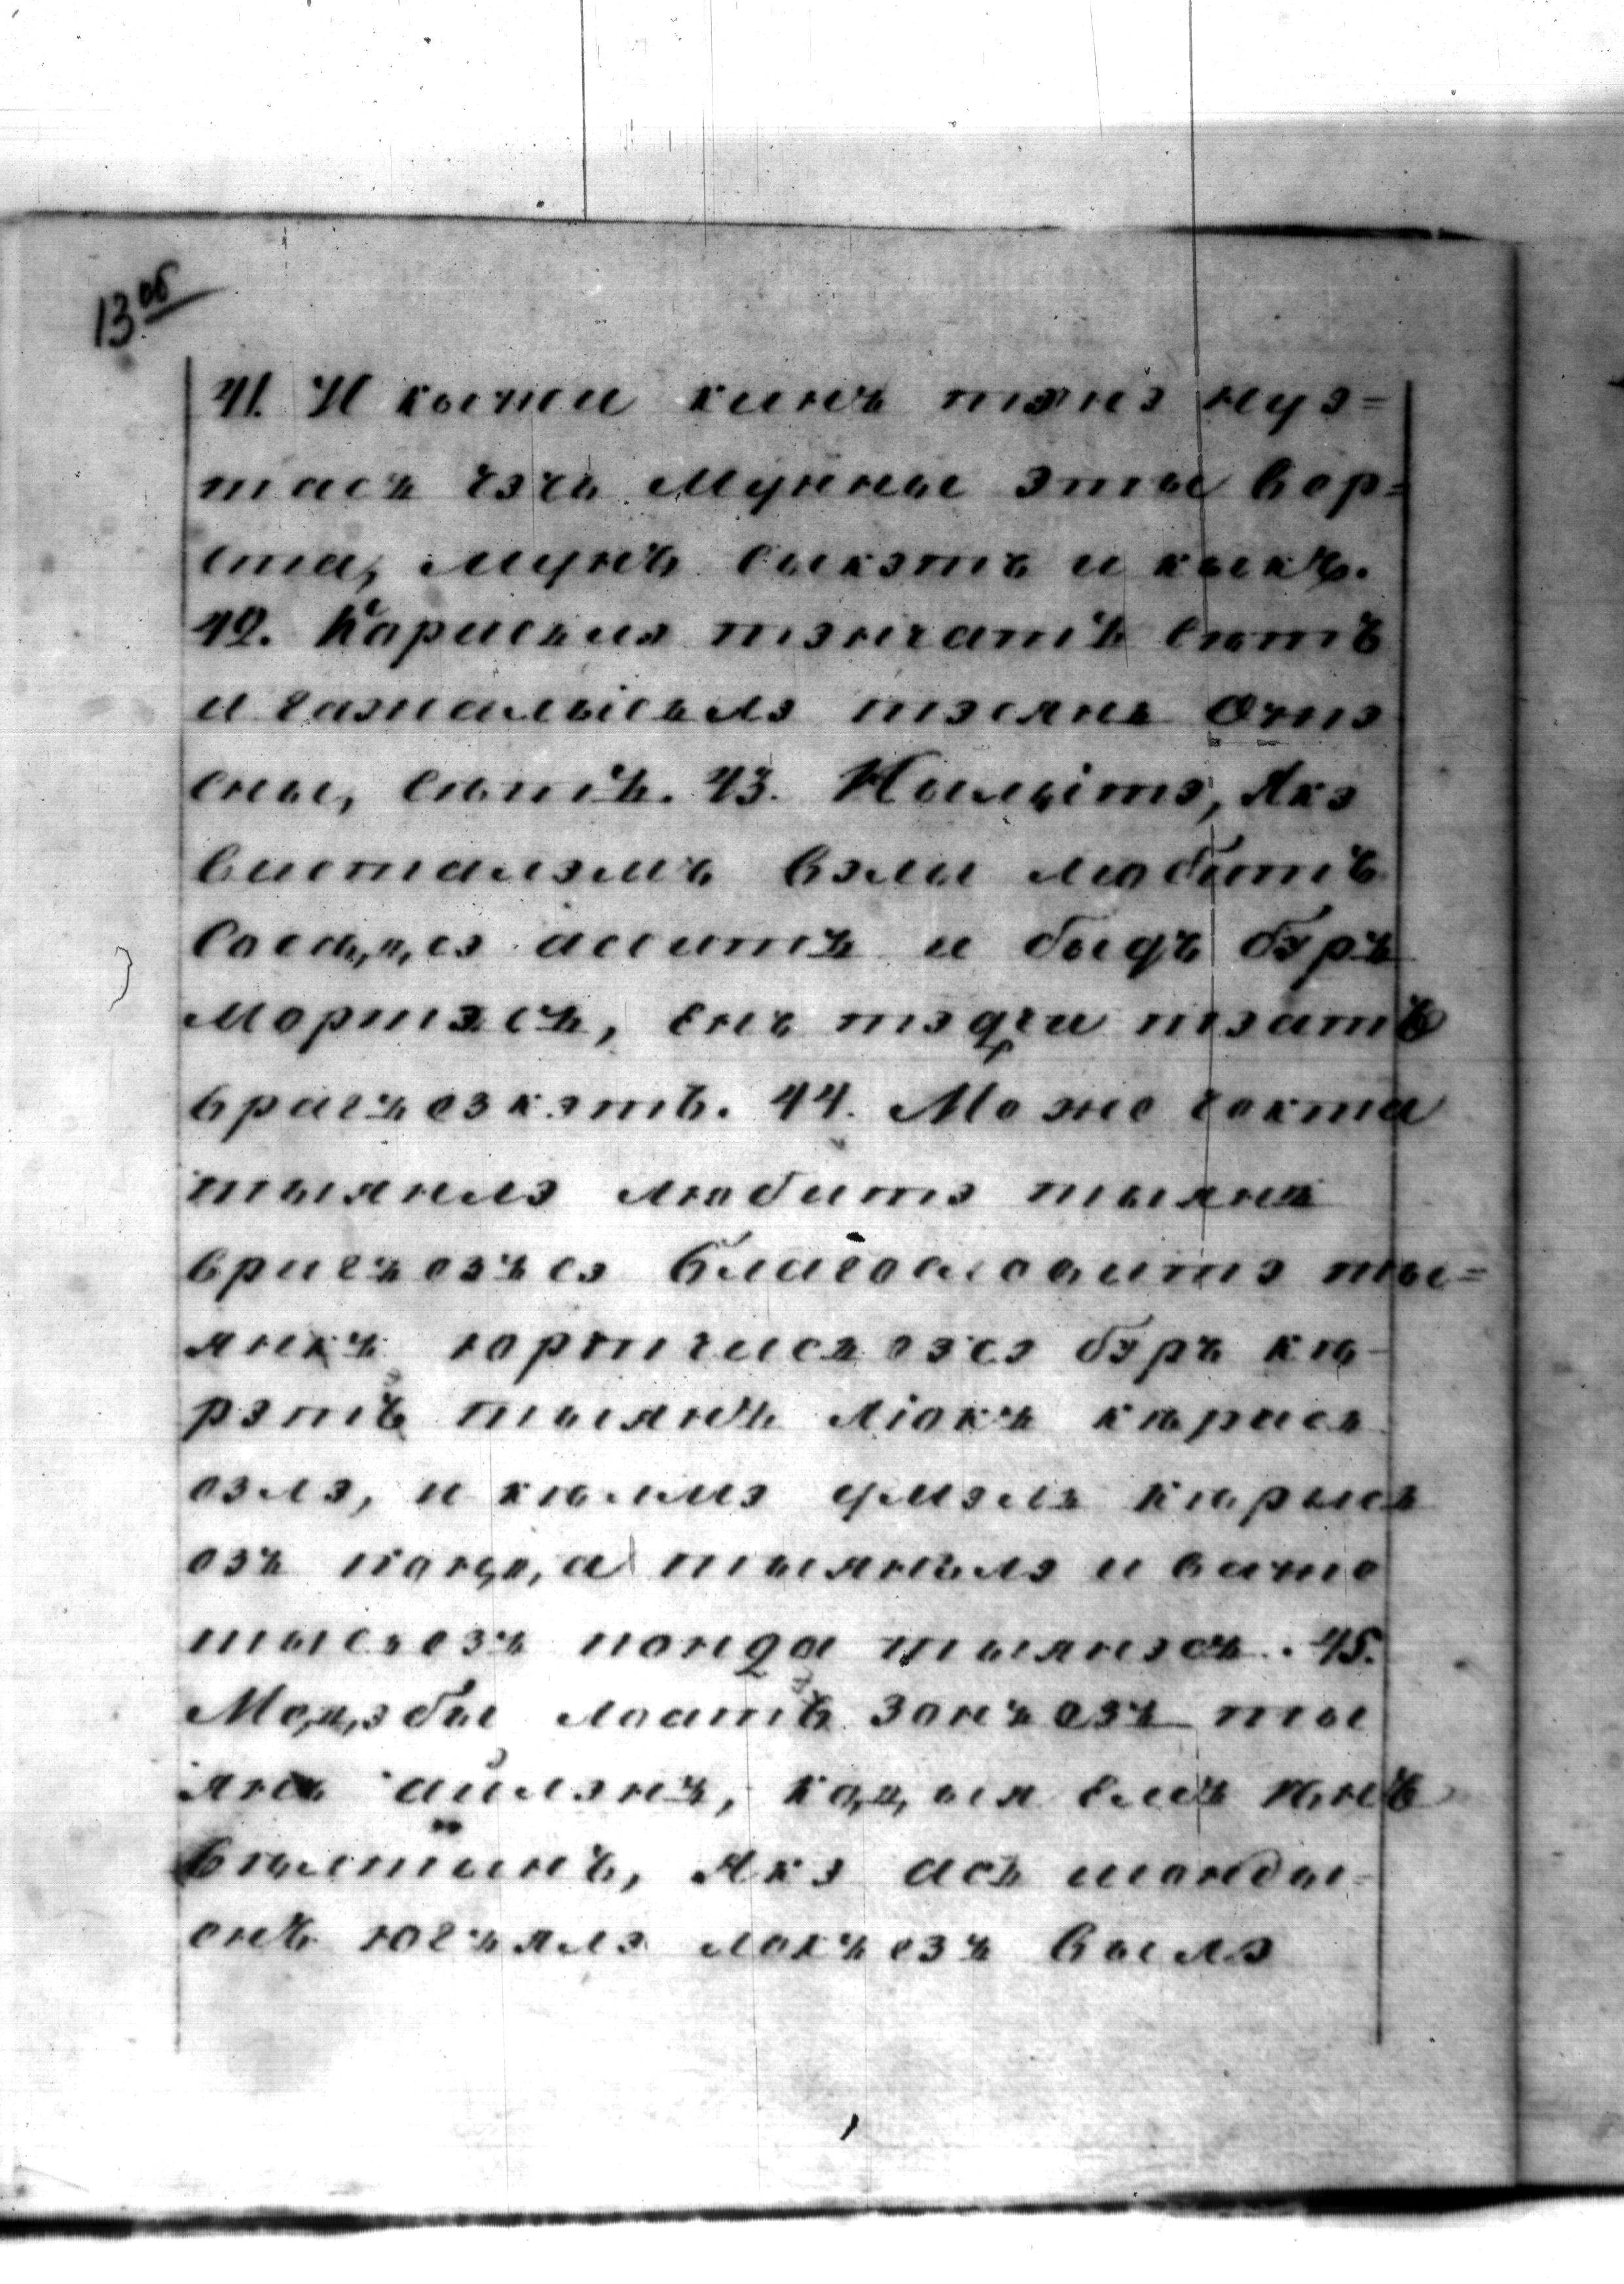 13 об
41. И кыжи кинъ тэнэ нуэ=
тасъ чэчъ мунные эты вер=
ста, мунъ сыкэтъ и кыкъ.
42. Кариськя тэнчатъ сютъ
и гажалыськлэ тэсянъ очтэ
сны, сютъ. 43. Кылытэ, Якэ
висталэмъ вэли любитъ
Соецэ асситъ и быдъ бэръ
мортэсъ, энъ тэдчи тэатъ
врагъезкэтъ. 44. Може гокта
тыянлэ любитэ тыянъ
врагъезъсэ благословитэ ты=
янкъ юртчисьезсэ бэръ кю-
рэтъ тыянъ ліокъ кариcь
озлэ, и кюлмэ умэль карысь
озъ понда, а тыянълэ и вачке
тысьезъ понда тыянэсъ. 45.
Медэбы лоатъ зонъезъ ты
янъ айлэнъ, кодыя елъ инъ
вылтынъ, Якэ асъ шонды-
онъ югъялэ локъезъ вылэ